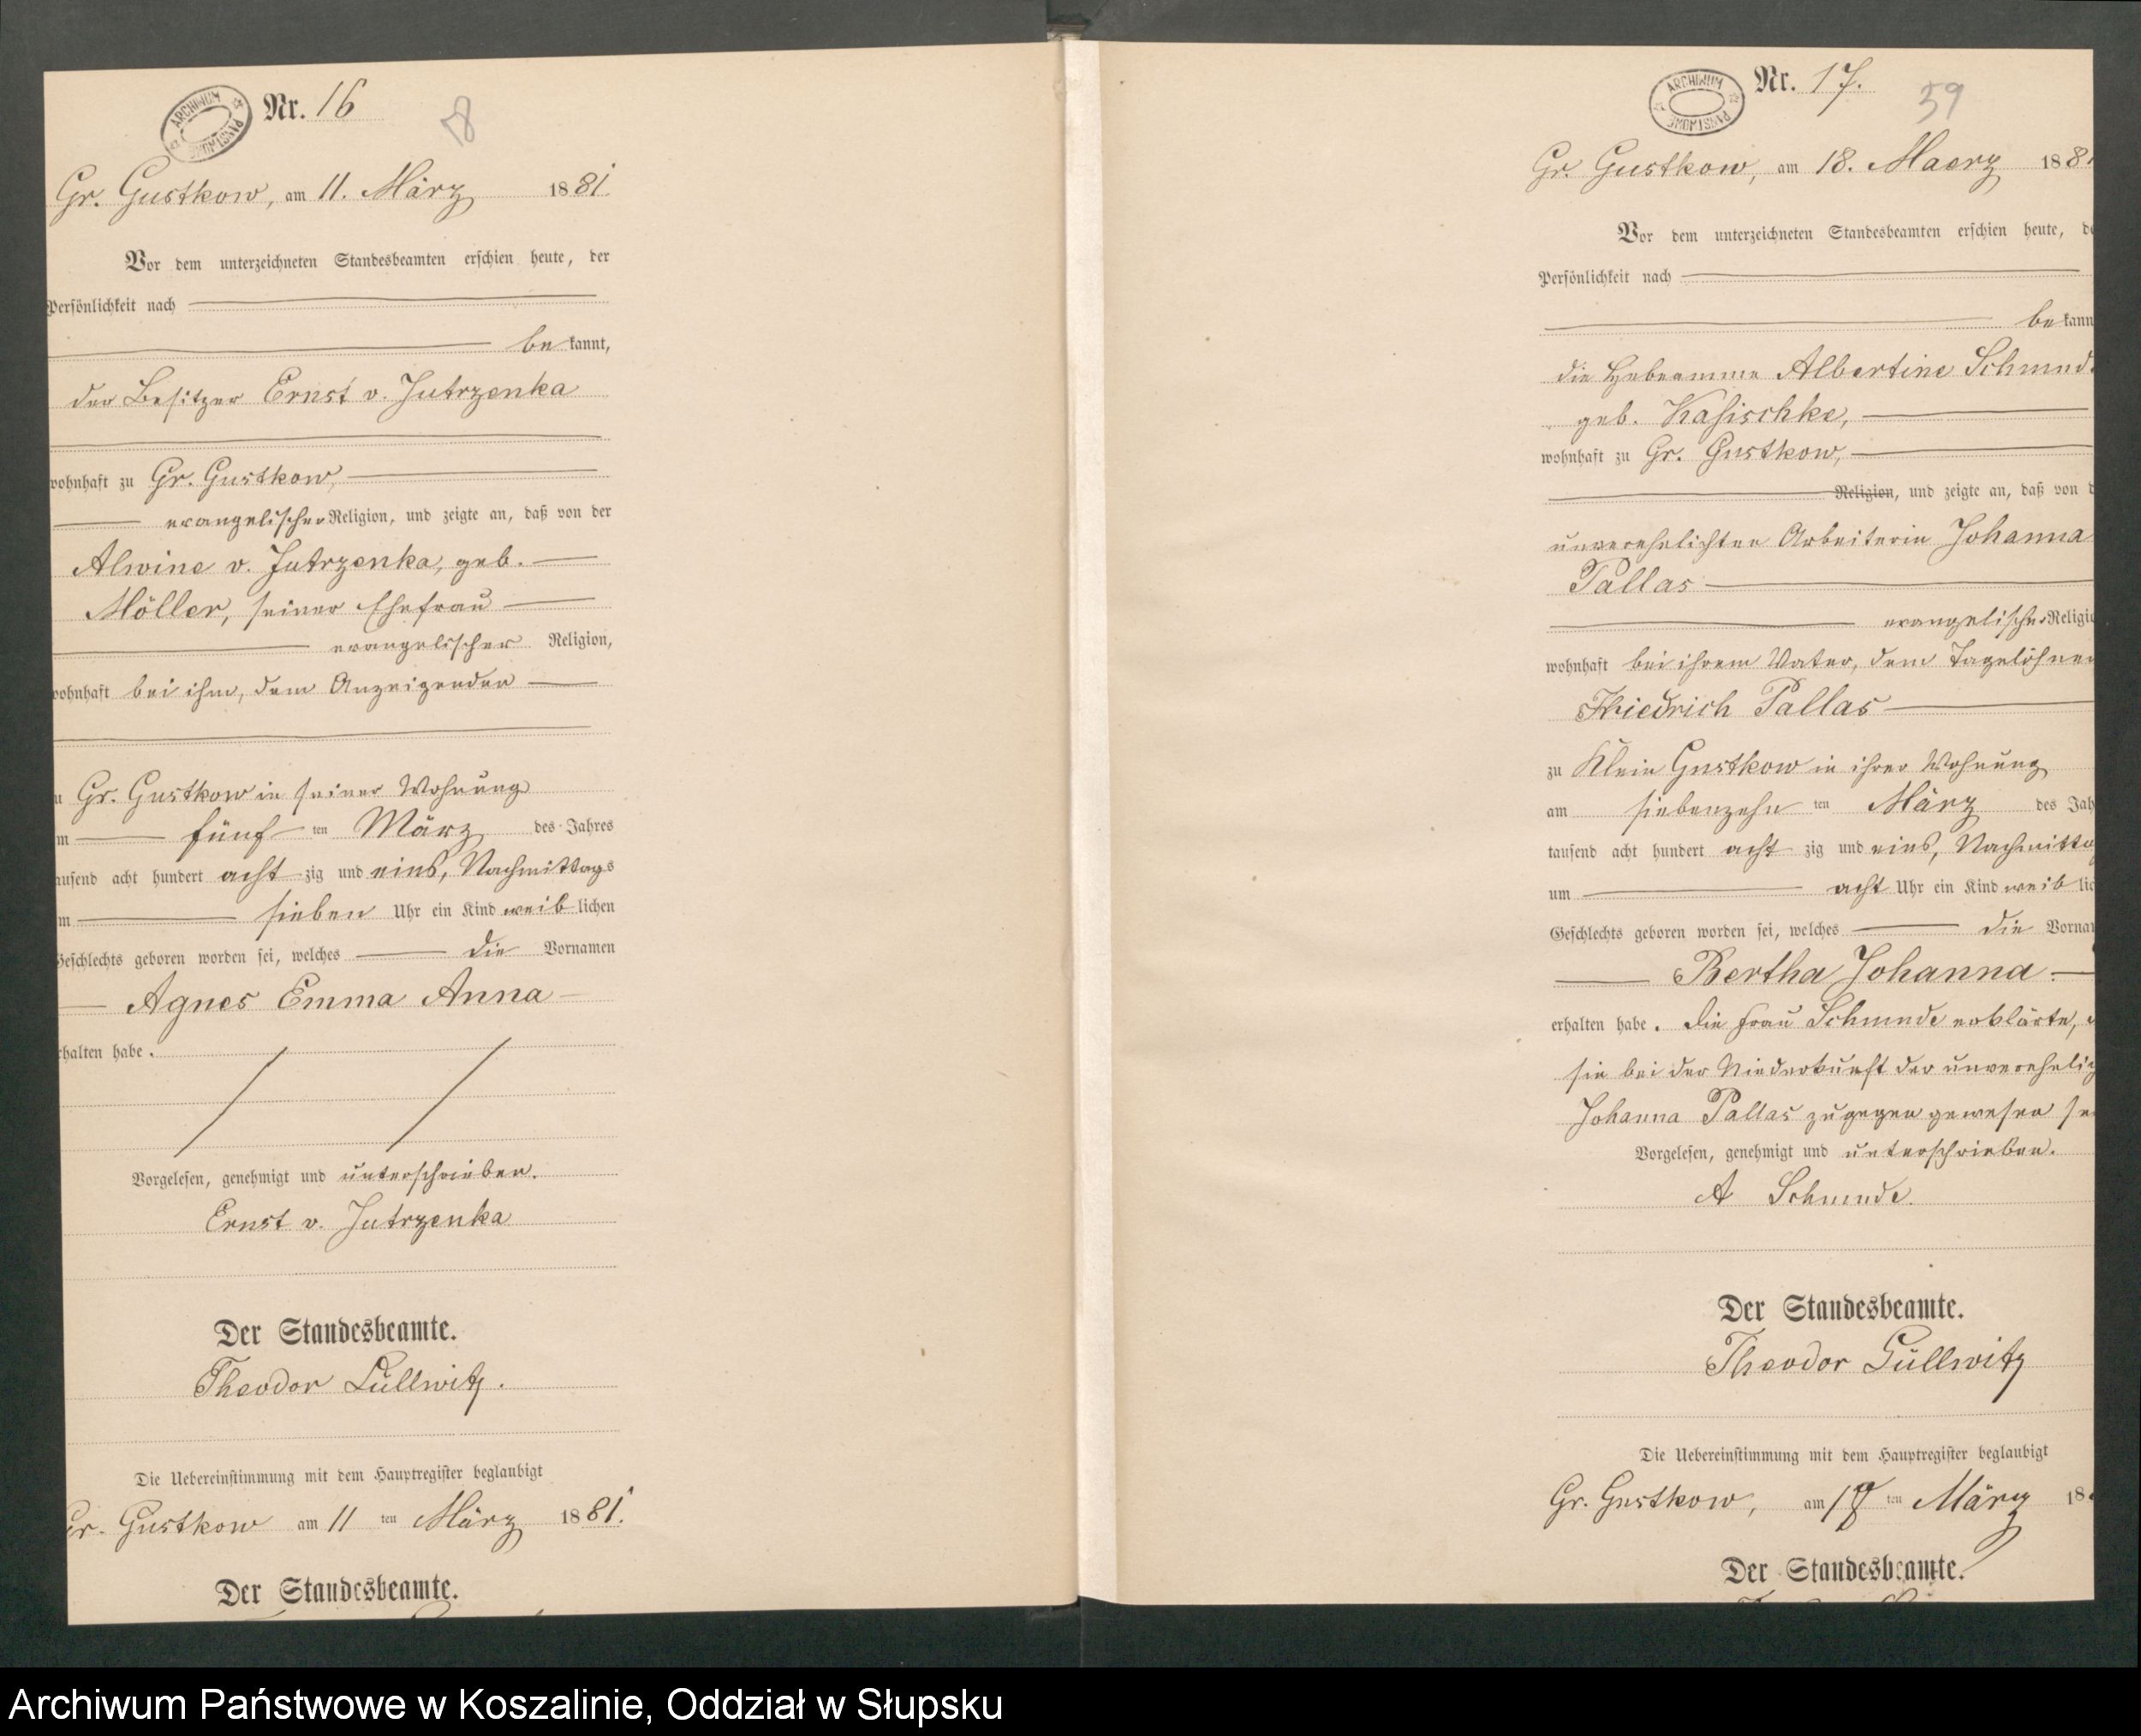 ARCHIWUM PAŃSTWOWE
Nr. 16
Gr. Gustkow, am 11. März 1881.
Vor dem unterzeichneten Standesbeamten erschien heute, der
Persönlichkeit nach
be kannt,
der Besitzer Ernst v. Jutrzenka
wohnhaft zu Gr. Gustkow,
evangelischer Religion, und zeigte an, daß von der
Alwine v. Jutrzenka, geb.
Möller, seiner Ehefrau
evangelischer Religion,
wohnhaft bei ihm, dem Anzeigenden
u Gr. Gustkow in seiner Wohnung
m fünf ten März des Jahres
ausend acht hundert acht zig und eins, Nachmittags
m sieben Uhr ein Kind weib lichen
Geschlechts geboren worden sei, welches die Vornamen
Agnes Emma Anna
rhalten habe.
Vorgelesen, genehmigt und unterschrieben.
Ernst v. Jutrzenka
Der Standesbeamte.
Theodor Lüllwitz.
Die Uebereinstimmung mit dem Hauptregister beglaubigt
Gr. Gustkow am 11 ten März 1881.
Der Standesbeamte.
ARCHIWUM PAŃSTWOWE
Nr. 17.
59
Gr. Gustkow, am 18. Maerz 188
Vor dem unterzeichneten Standesbeamten erschien heute, de
Persönlichkeit nach
be kann
die Hebeamme Albertine Schmud
geb. Kasischke,
wohnhaft zu Gr. Gustkow,
Religion, und zeigte an, daß von d
unverehelichten Arbeiterin Johanna
Pallas
evangelischer Religio
wohnhaft bei ihrem Vater, dem Tagelöhner
Friedrich Pallas
zu Klein Gustkow in ihrer Wohnung
am siebenzehn ten März des Jah
tausend acht hundert acht zig und eins, Nachmittag
um acht Uhr ein Kind weib lic
Geschlechts geboren worden sei, welches die Vorna
Bertha Johanna
erhalten habe. Die Frau Schmude erklärte,
sie bei der Niederkunft der unverehelich
Johanna Pallas zugegen gewesen se
Vorgelesen, genehmigt und unterschrieben.
A Schmude.
Der Standesbeamte.
Theodor Lüllwitz
Die Uebereinstimmung mit dem Hauptregister beglaubigt
Gr. Gustkow, am 18 ten März 18
Der Standesbeamte.
Archiwum Państwowe w Koszalinie, Oddział w Słupsku